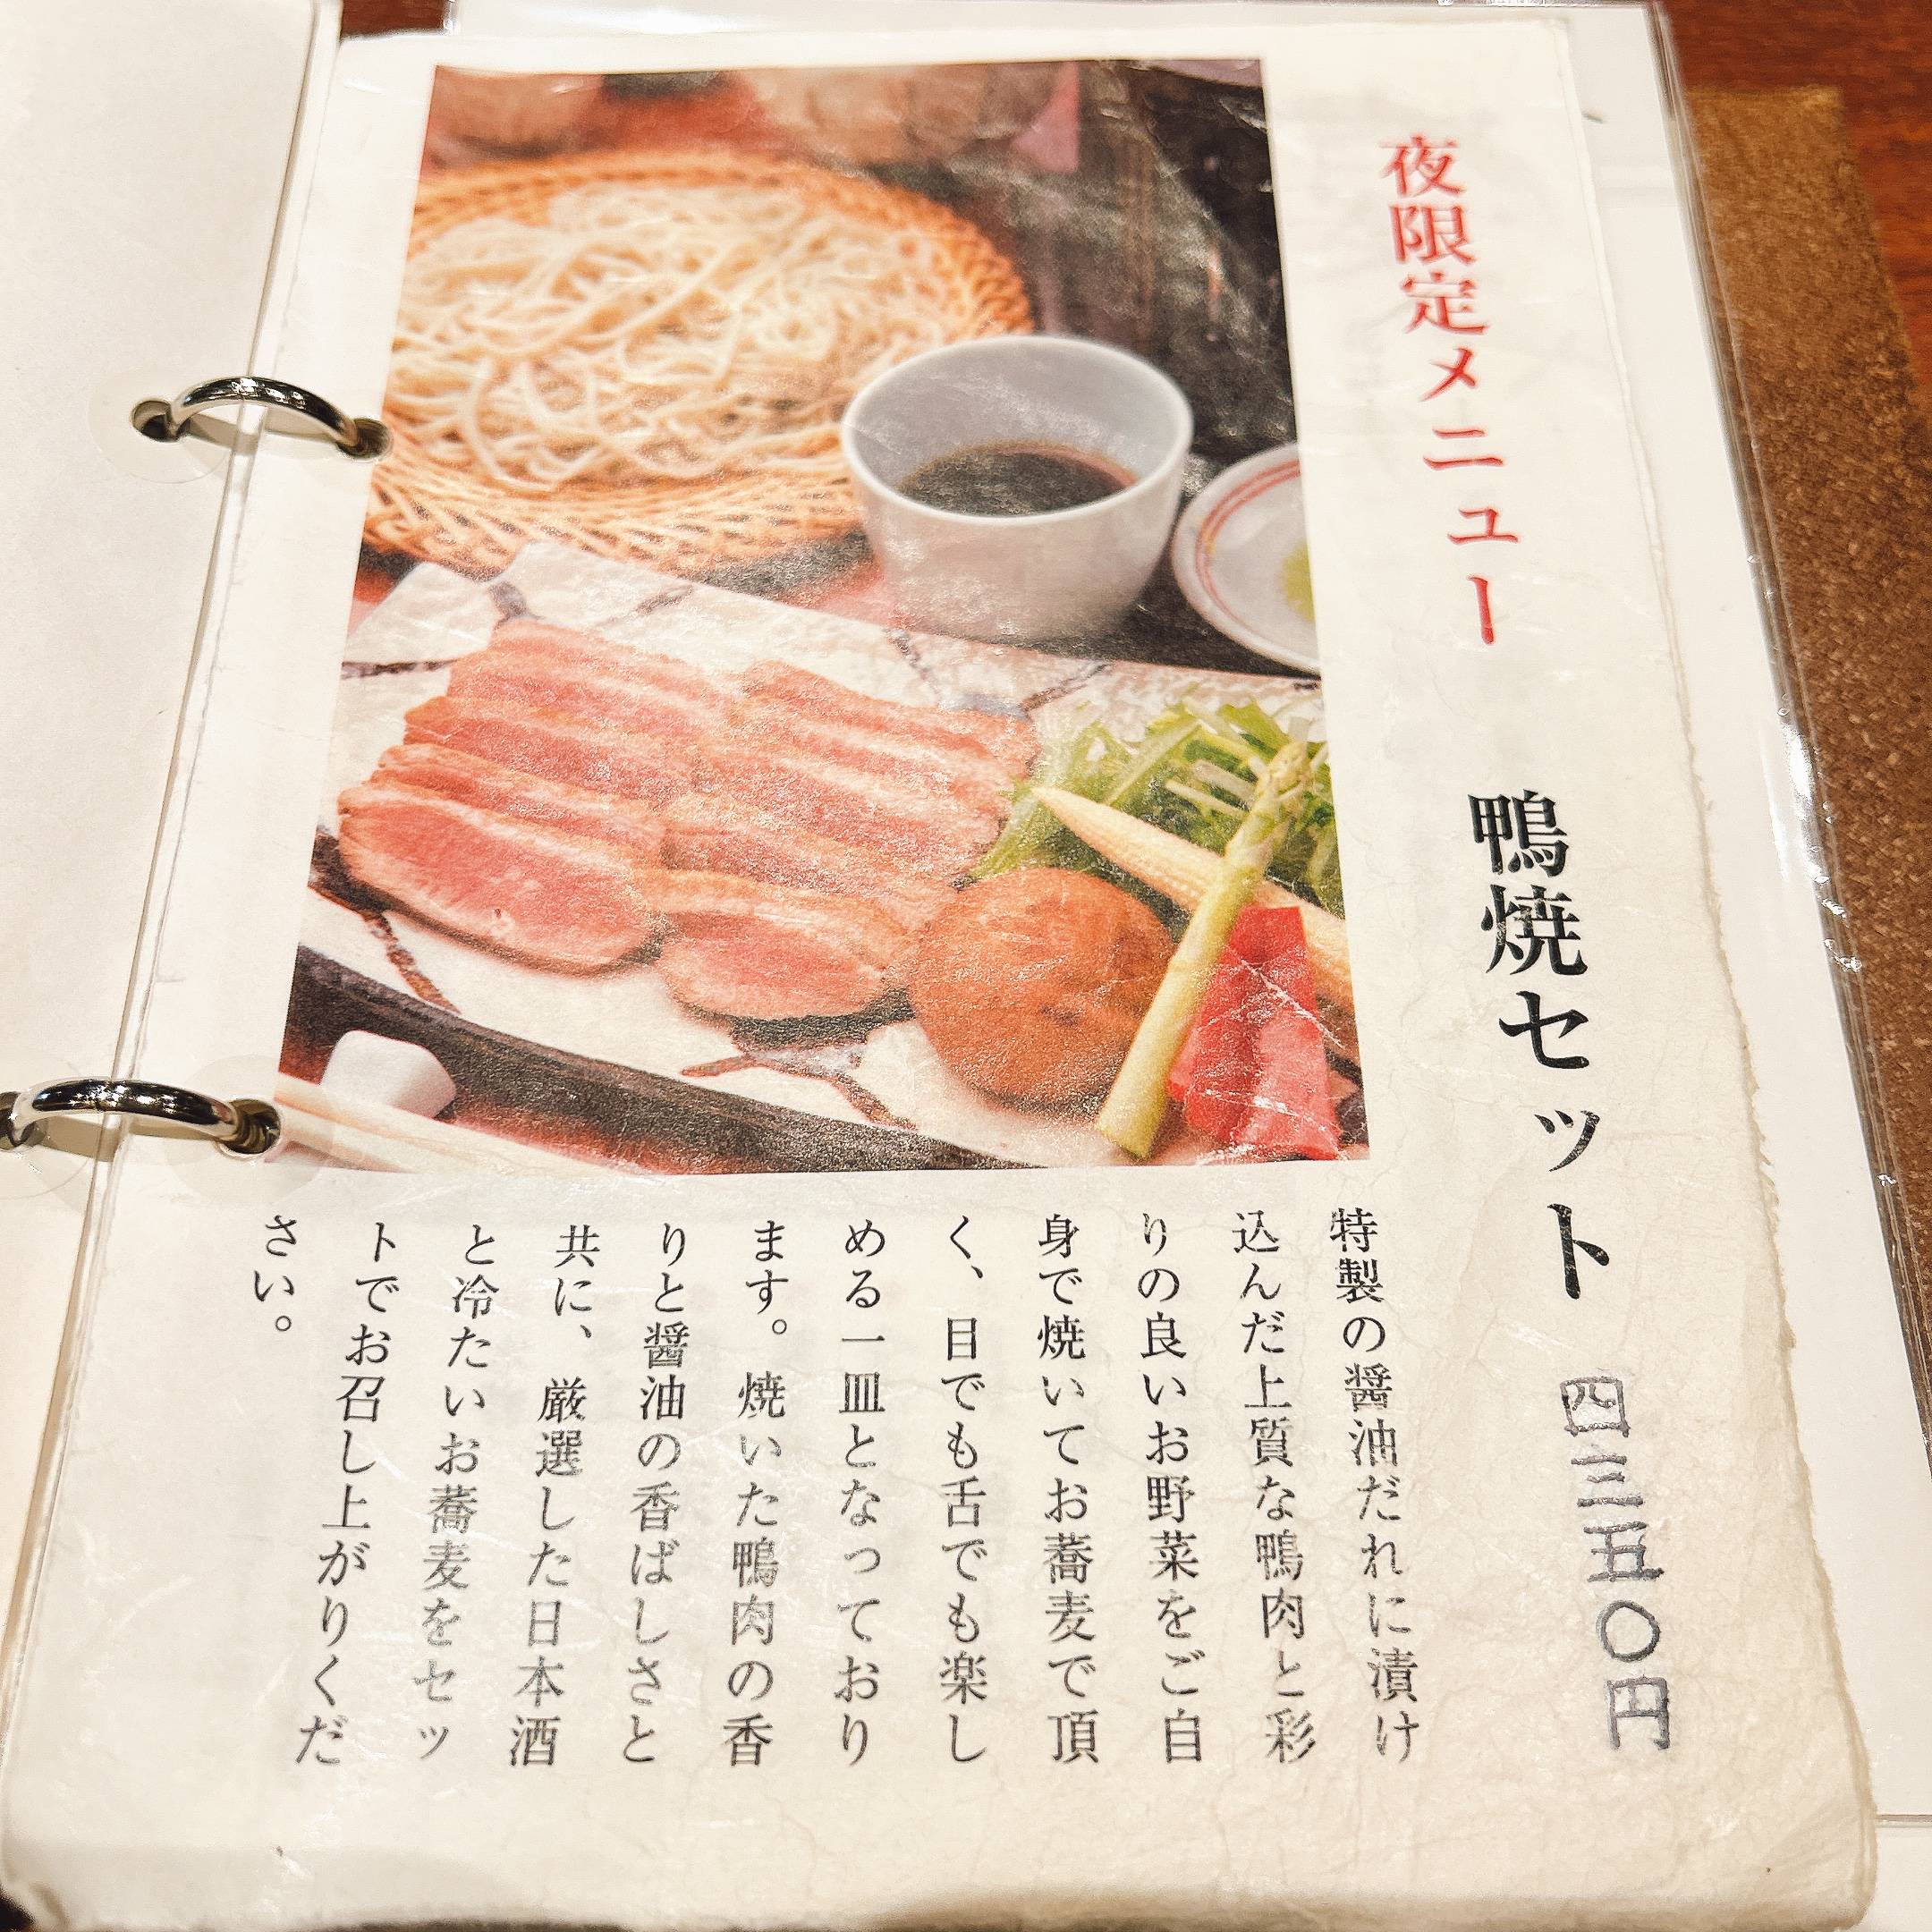 夜限定メニュー 鴨焼セット 四三五〇円
特製の醤油だれに漬け
込んだ上質な鴨肉と彩
りの良いお野菜をご自
身で焼いてお蕎麦で頂
く、目でも舌でも楽し
める一皿となっており
ます。焼いた鴨肉の香
りと醤油の香ばしさと
共に、厳選した日本酒
と冷たいお蕎麦をセッ
トでお召し上がりくだ
さい。